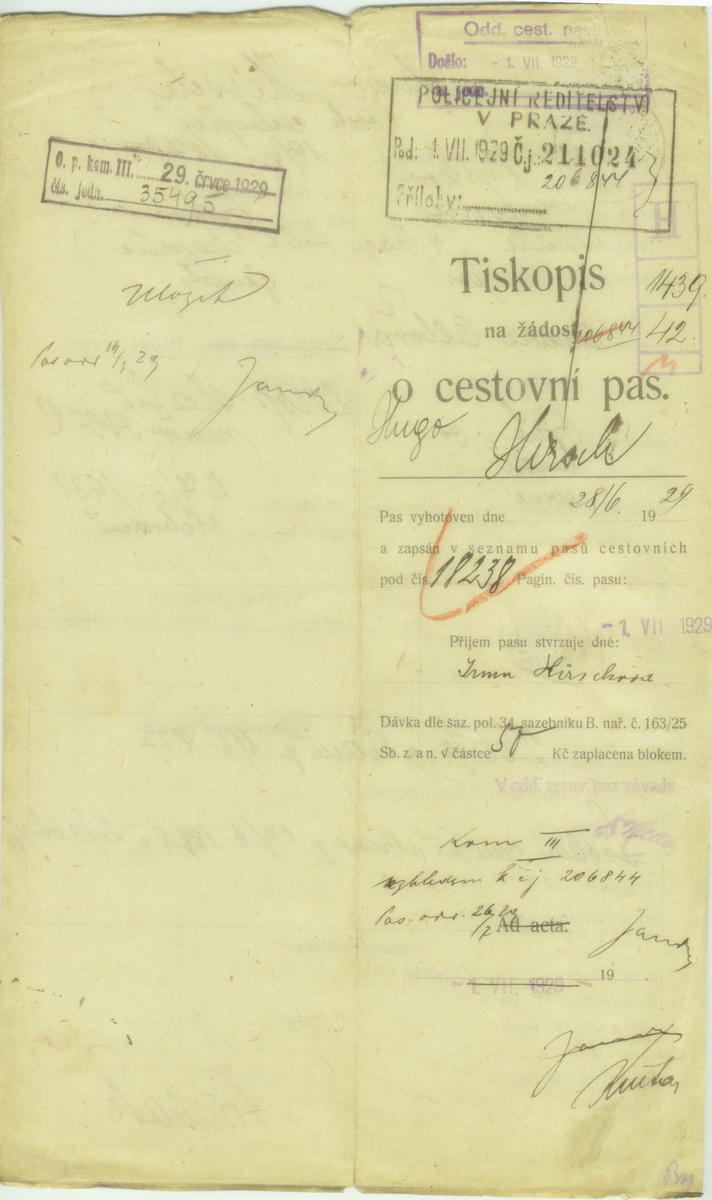 Odd. cest. pa
Došlo: - 1. VII. 1929
POLICEJNÍ ŘEDITELSTVÍ
V PRAZE.
Pod: 1. VII. 1929 Č.j.: 211024
206844
Přílohy:
O. p. kom. III. 29. července 1929
čís. jedn. 35495
H
Tiskopis
1439.
na žádost
206844
42.
o cestovní pas.
Uložit
Pas. odd.
Hugo Hirsch
Pas vyhotoven dne 28/6. 1929
a zapsán v seznamu pasů cestovních
pod čís. 18238 Pagin. čís. pasu:
- 1. VII. 1929
Příjem pasu stvrzuje dne:
Irma Hirschova
Dávka dle saz. pol. 34, sazebníku B. nař. č. 163/25
Sb. z. a n. v částce 50 Kč zaplacena blokem.
V odd. zprav. bez závady
Kom III
vzhledem k čj. 206844
Pas. odd. 26/7 29
Ad acta.
- 1. VII. 1929
19